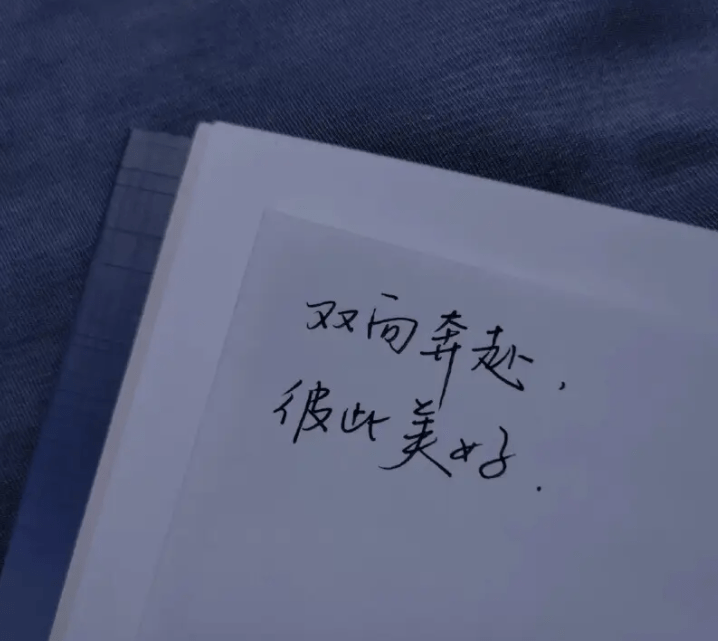 双向奔赴,
彼此美好.